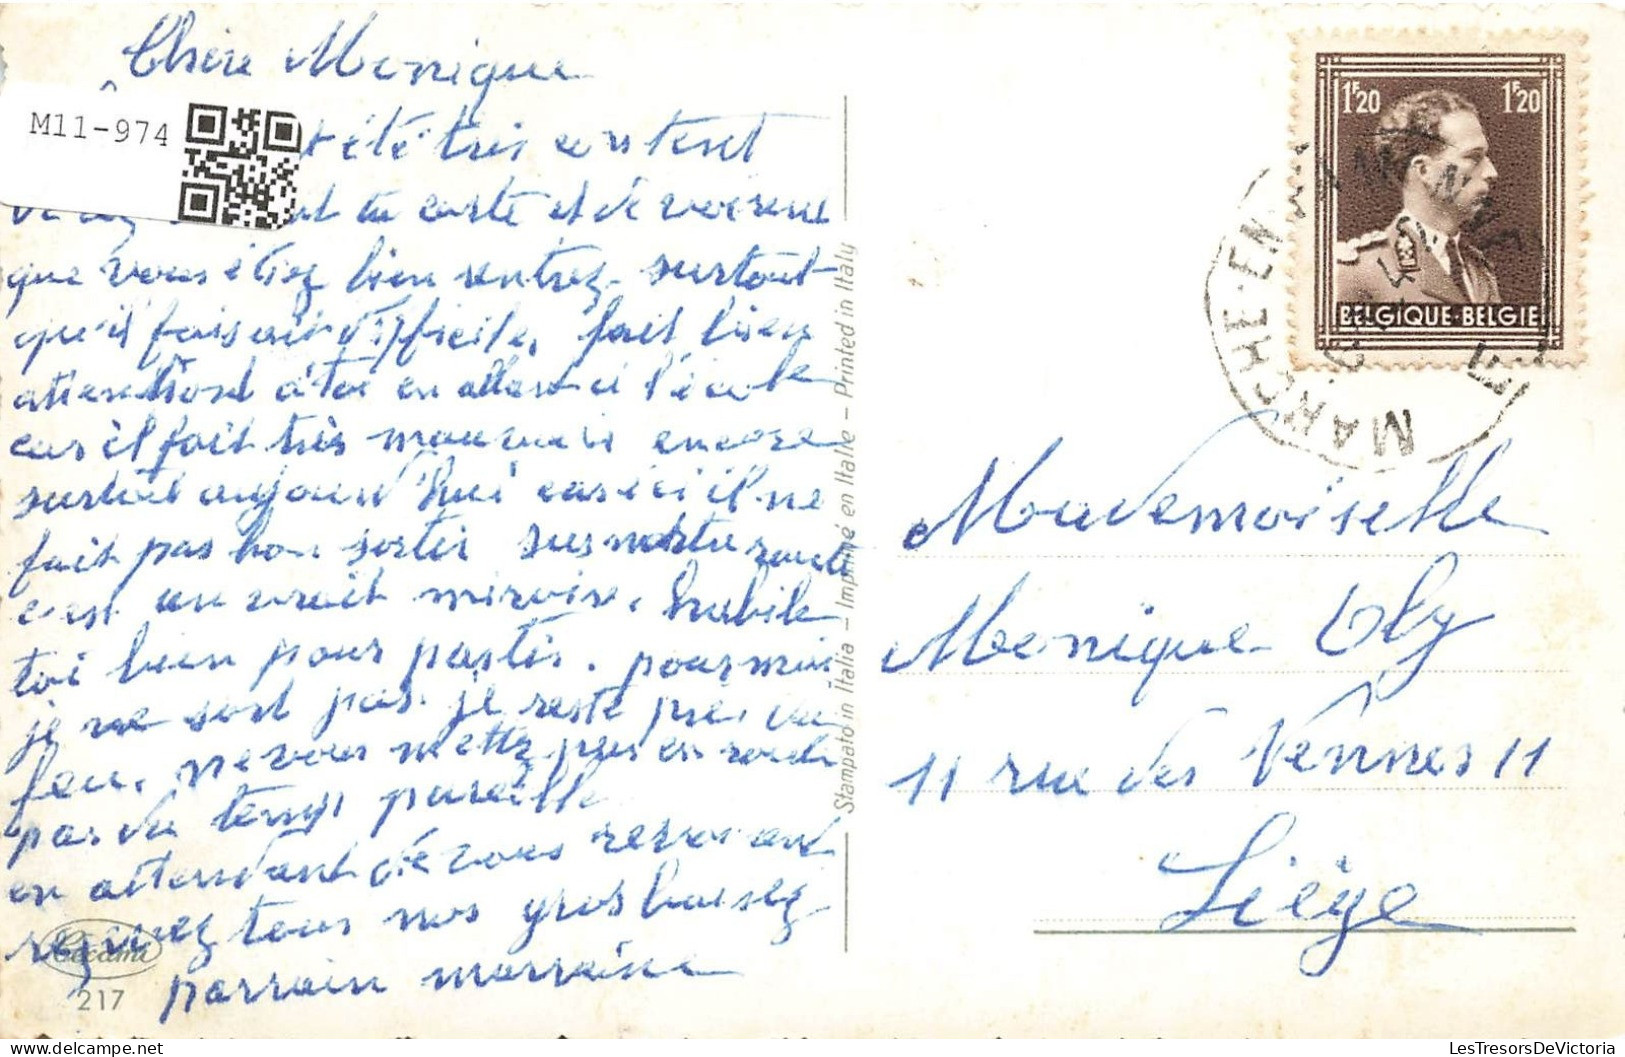 Chère Monique
M11-974
été très content
ta carte et de voir
que vous étiez bien rentrez. surtout
qu'il faisait difficile, fait bien
attention à toi en allant à l'école
car il fait très mauvais encore
surtout aujourd'hui car ici il ne
fait pas bon sortir sur notre route
c'est un vrait miroire. habille
toi bien pour partir. pour moi
je ne sort pas. je reste près du
feu. ne vous mettez pas en route
par du temps pareille
en attendant de vous revoir
recevez tous nos gros baisez
parrain marraine
Ceccami
217
Stampato in Italia – Imprimé en Italie – Printed in Italy
1F20 1F20
BELGIQUE·BELGIE
MARCHE-EN-FAMENNE
Mademoiselle
Monique Oly
11 rue des Vennes 11
Liège
LesTresorsDeVictoria